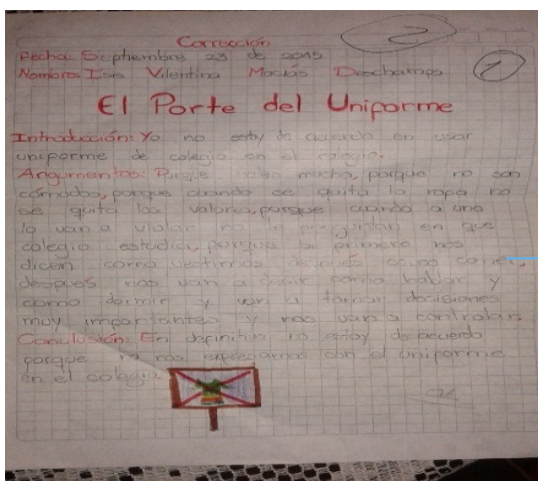 Corrección
Fecha: Septiembre 23 de 2015
Nombre: Isis Valentina Macias Deschamps
El Porte del Uniforme
Introducción: Yo no estoy de acuerdo en usar
uniforme de colegio en el colegio.
Argumentos: Porque mucho, porque no son
cómodos, porque cuando se quita la ropa no
se quita los valores, porque cuando a uno
lo van a violar no le preguntan en que
colegio estudia, porque la primero nos
dicen como vestirnos después como comer,
después nos van a decir como hablar y
como dormir y van a tomar decisiones
muy importantes y nos van a controlar
Conclusión: En definitiva no estoy de acuerdo
porque no nos expresamos con el uniforme
en el colegio.